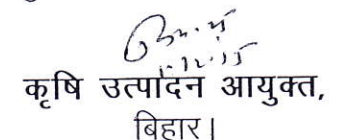 कृषि उत्पादन आयुक्त,
बिहार।